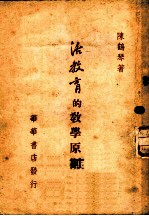 陳鶴琴著
活教育的教學原則
華華書店發行